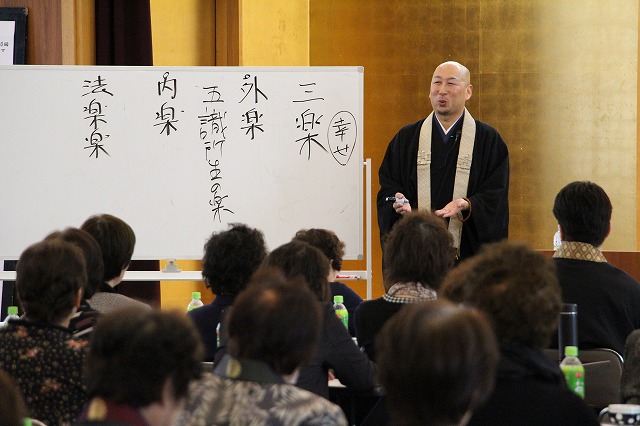 三楽
幸せ
外楽
五識所生の楽
内楽
法楽楽